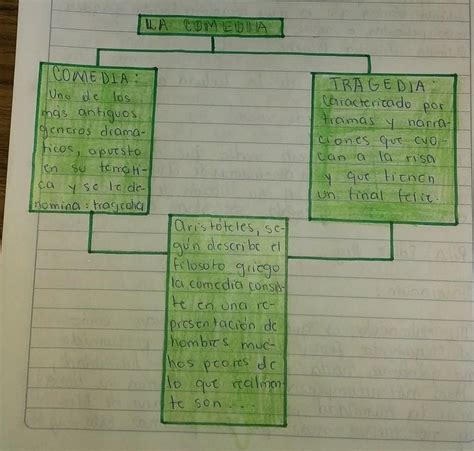 LA COMEDIA
COMEDIA:
Uno de los
más antiguos
generos drama-
ticos, opuesto
en su temáti-
ca y se le de-
nomina: tragedia
TRAGEDIA:
Caracterizado por
tramas y narra-
ciones que evo-
can a la risa
y que tienen
un final feliz.
Aristóteles, se-
gún describe el
filosofo griego
la comedia consis-
te en una re-
presentación de
hombres muc-
hos peores de
lo que realmen-
te son...